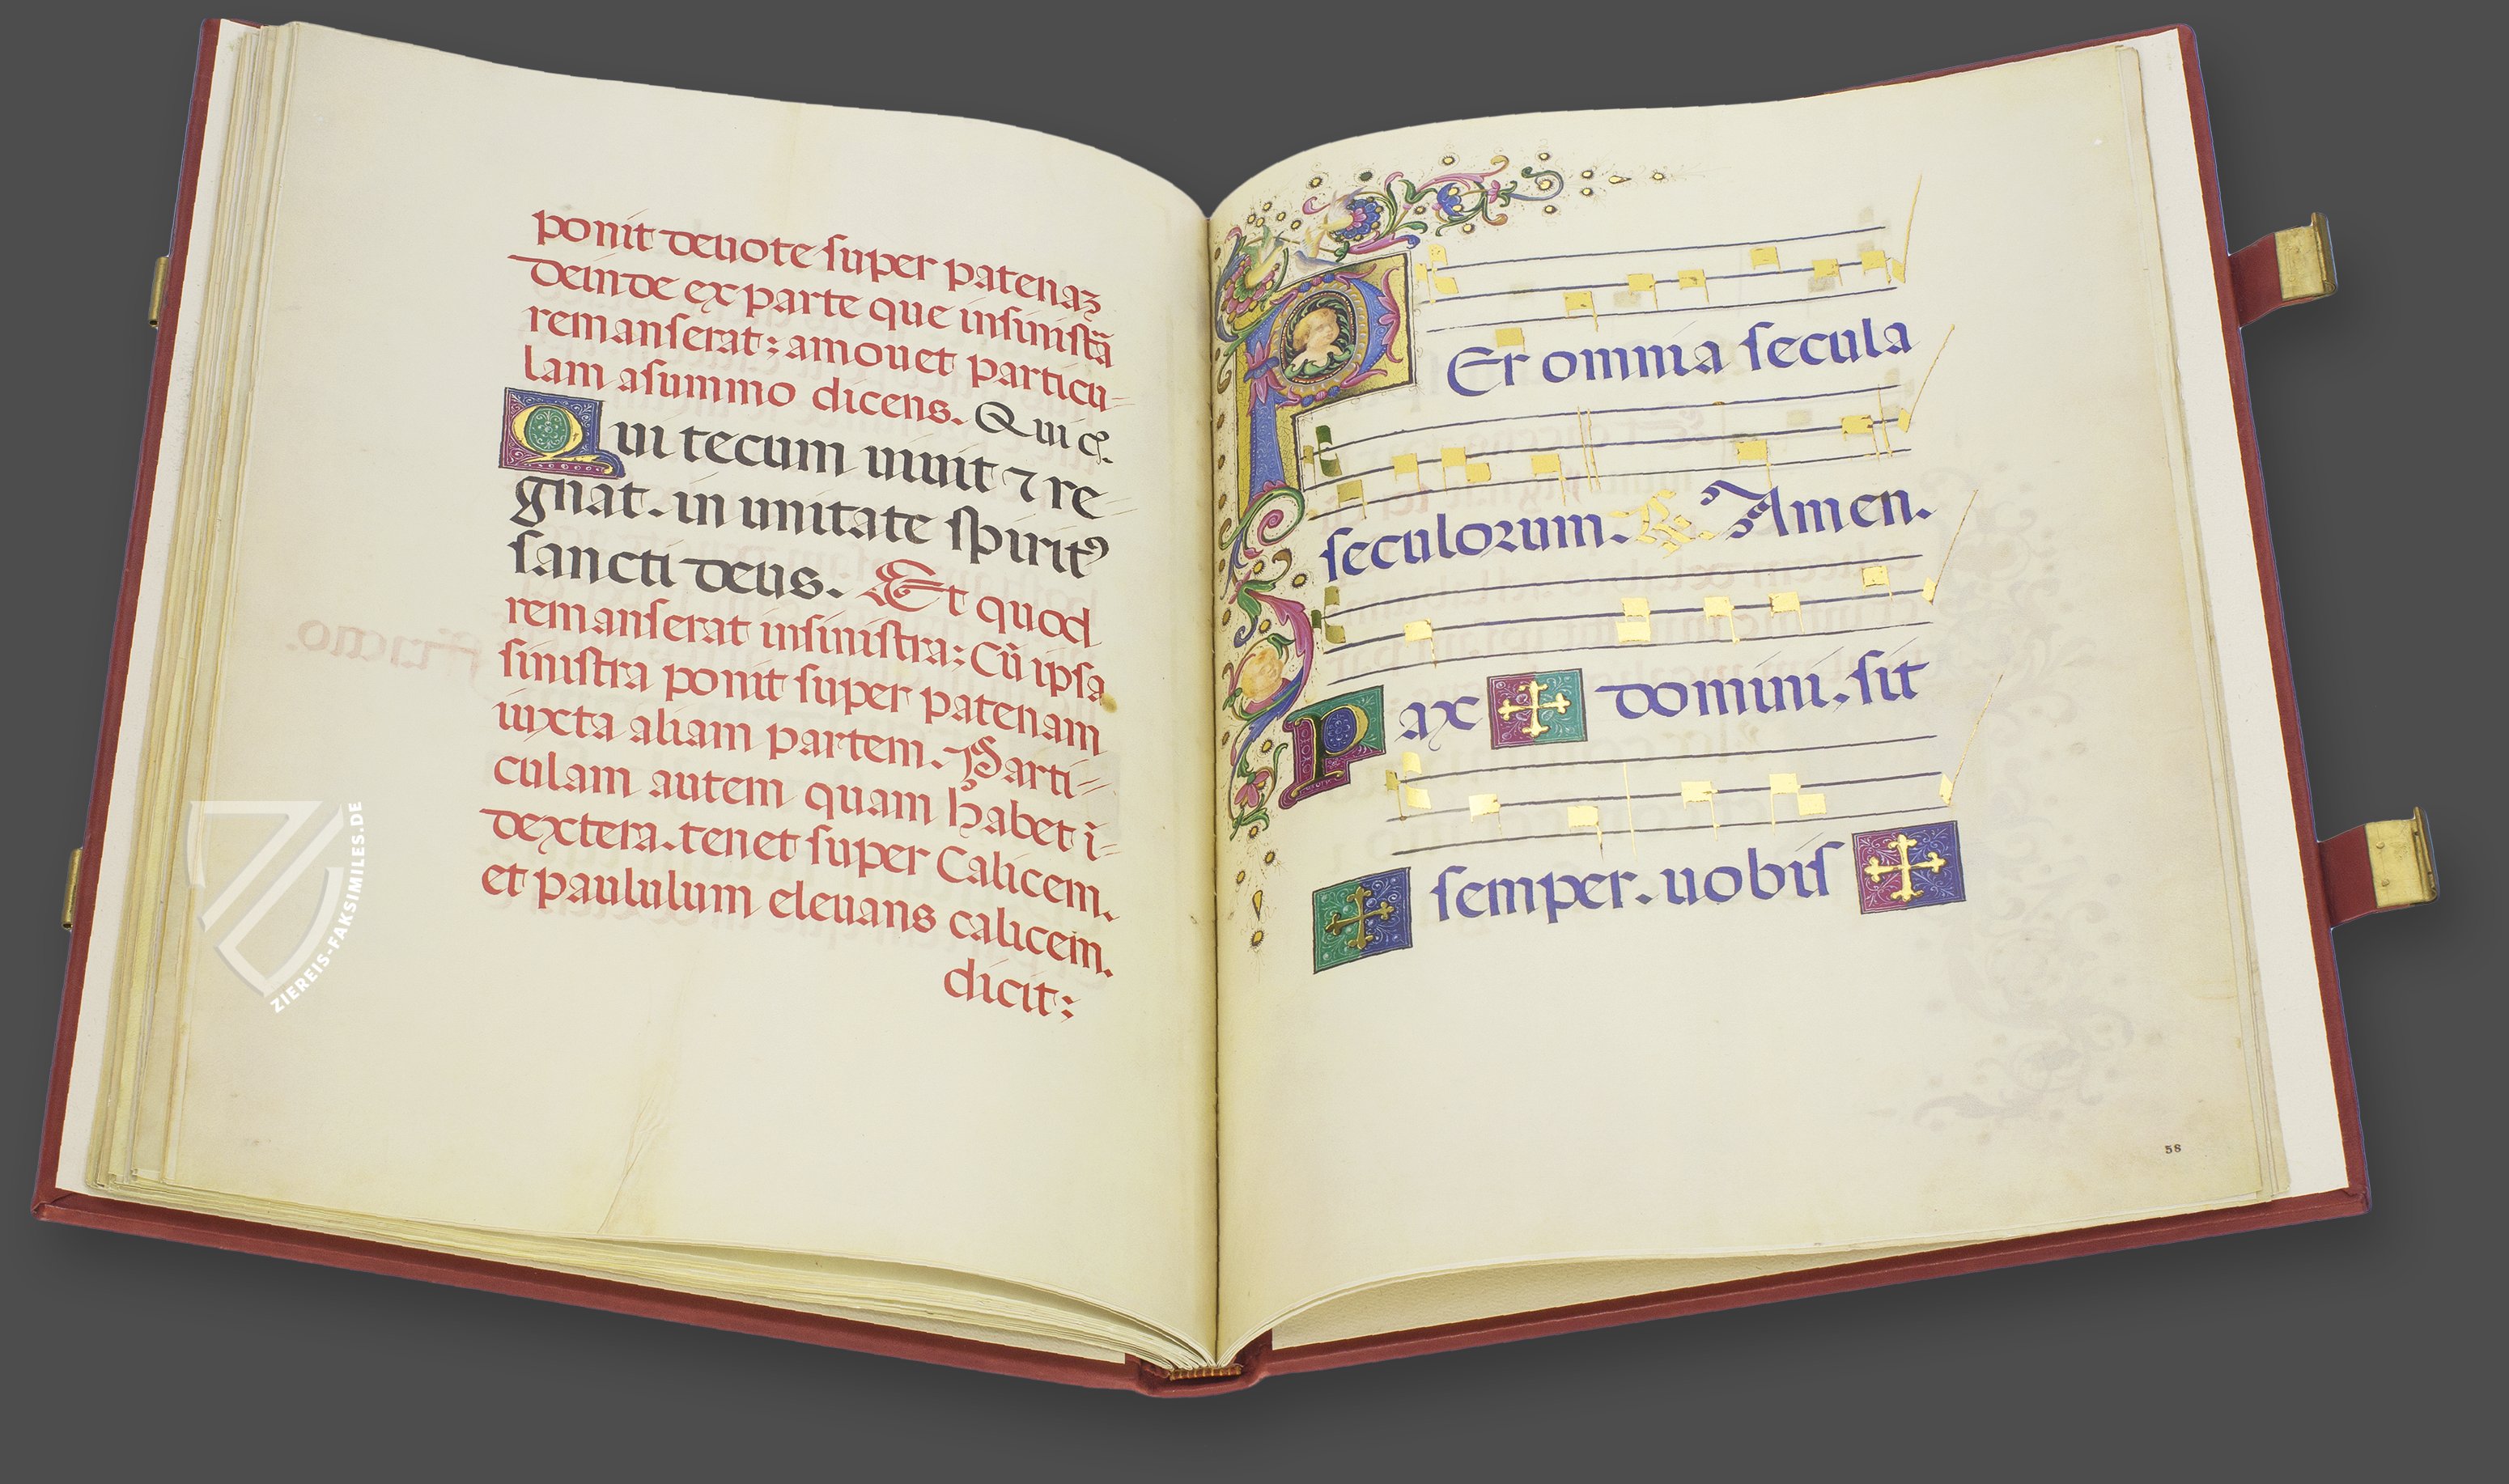 ponit deuote super patenaʒ
Deinde ex parte que insinistã
remanserat; amouet particu-
lam asummo dicens. Qui cꝰ.
Qui tecum uiuit ⁊ re
gnat. in unitate spiritꝰ
sancti deus. Et quod
remanserat insinistra: Cũ ipsa
sinistra ponit super patenam
iuxta aliam partem. Parti-
culam autem quam habet ĩ-
dextera. tenet super Calicem.
et paululum eleuans calicem.
dicit;
ZIEREIS-FAKSIMILES.DE
PEr omnia secula
seculorum. ℞. Amen.
Pax ✠ domini. sit
✠ semper. uobis ✠
58